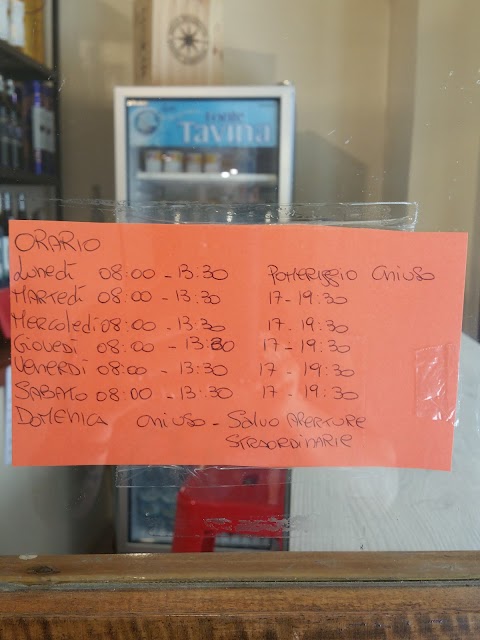 Fonte
Tavina
ORARIO
Lunedì 08:00 - 13:30 Pomeriggio chiuso
MARTEDì 08:00 - 13:30 17 - 19:30
MERCOLEDì 08:00 - 13:30 17 - 19:30
GIOVEDì 08:00 - 13:30 17 - 19:30
VENERDì 08:00 - 13:30 17 - 19:30
SABATO 08:00 - 13:30 17 - 19:30
DOMENICA chiuso - Salvo APERTURE
STRAORDINARIE